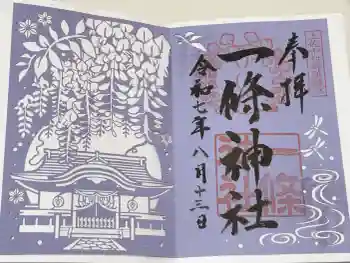 奉拝
一條神社
令和七年八月十三日